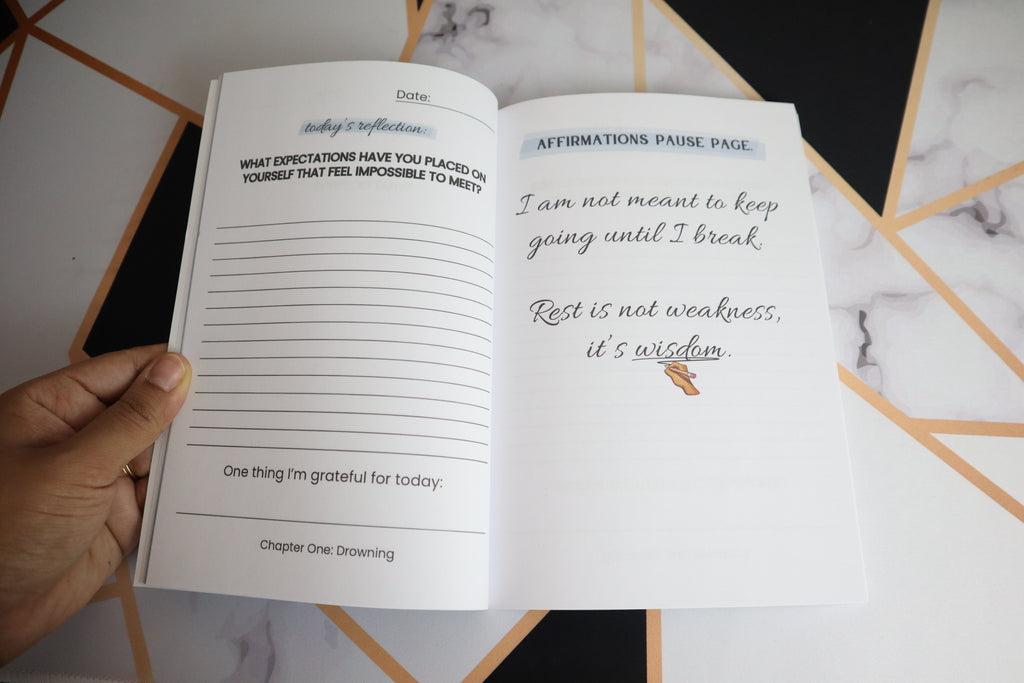 Date:
today's reflection:
WHAT EXPECTATIONS HAVE YOU PLACED ON
YOURSELF THAT FEEL IMPOSSIBLE TO MEET?
One thing I'm grateful for today:
Chapter One: Drowning
AFFIRMATIONS PAUSE PAGE.
I am not meant to keep
going until I break.
Rest is not weakness,
it's wisdom.